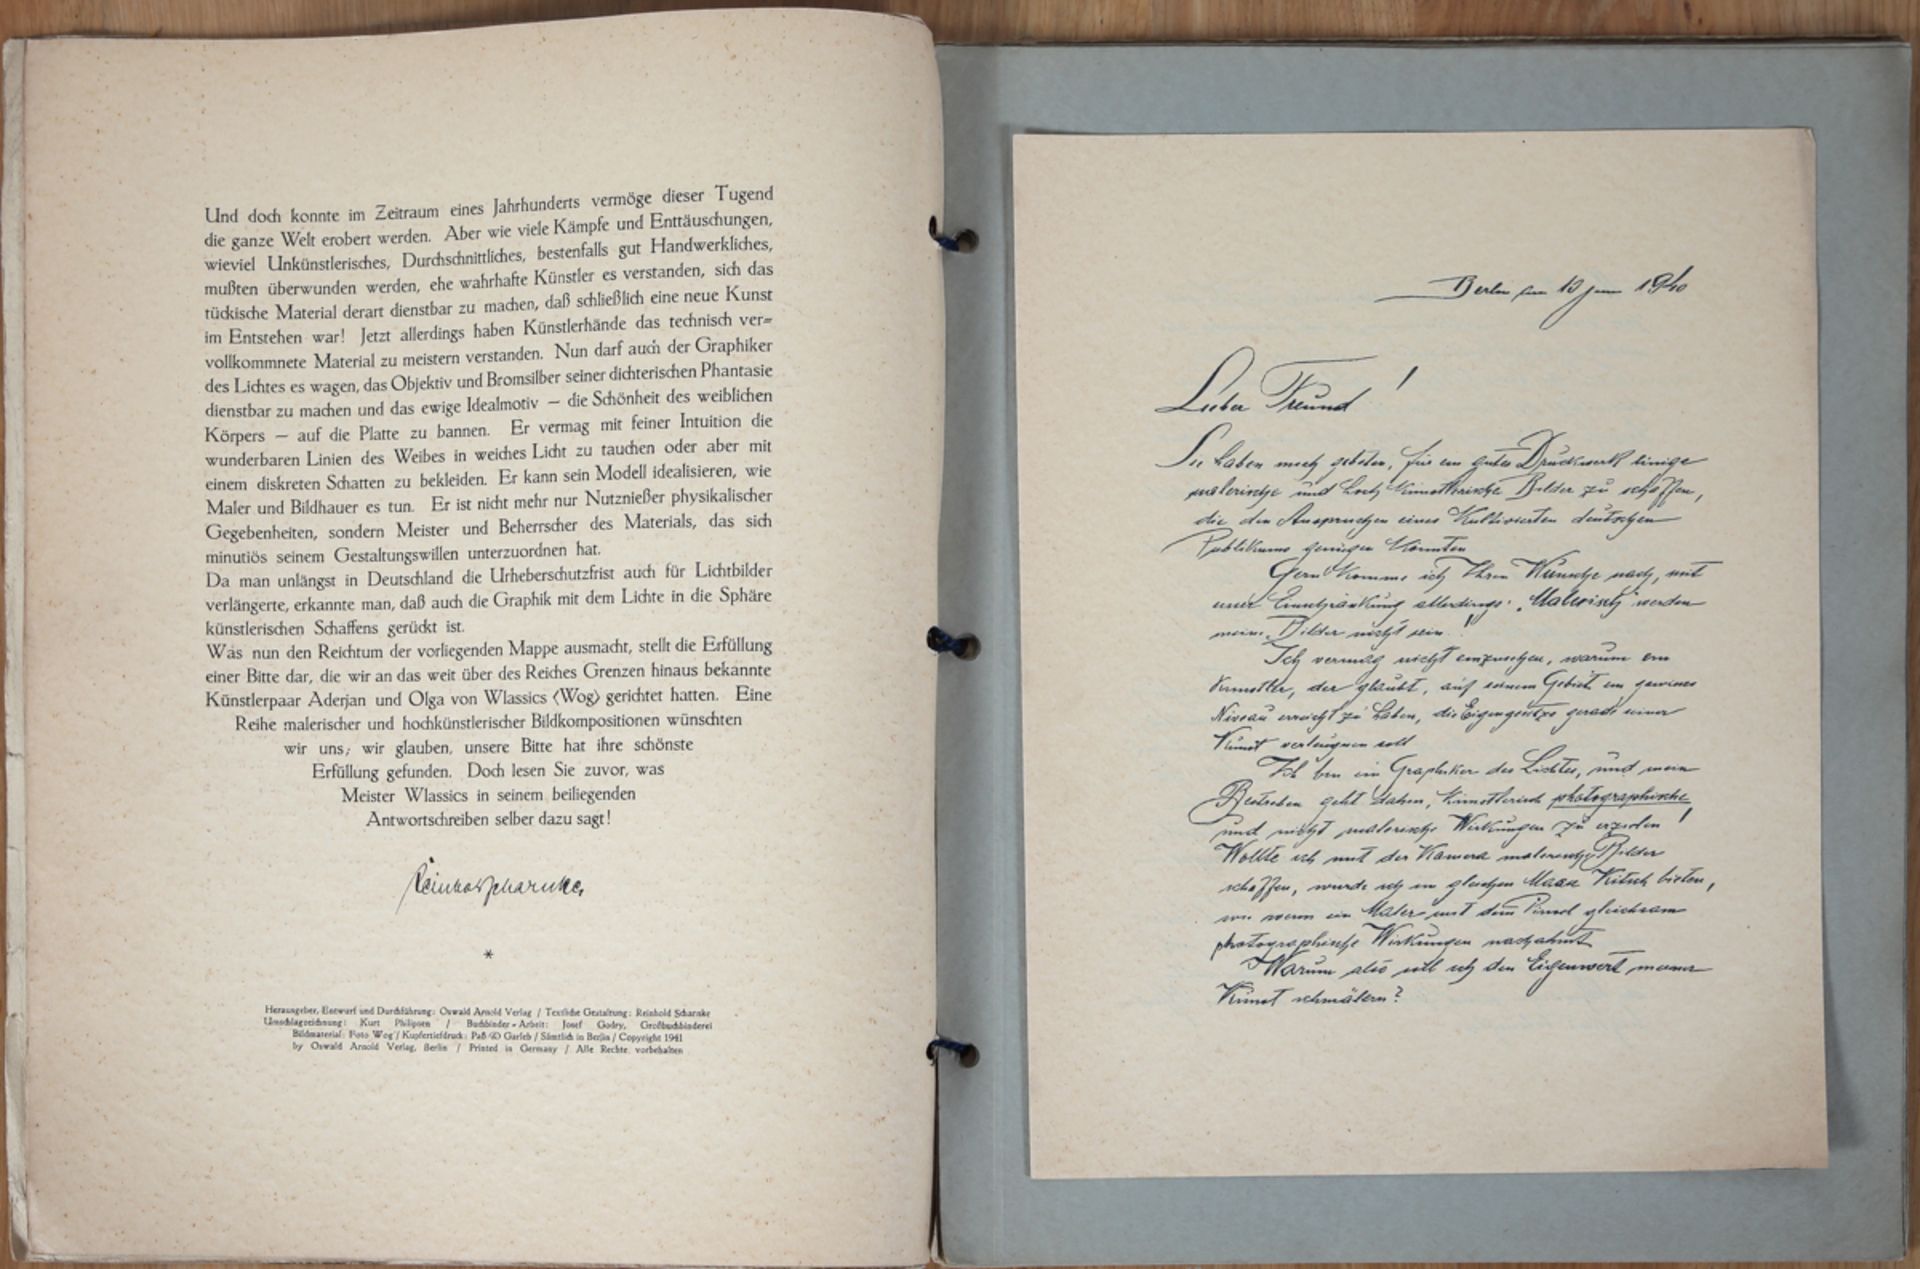 Und doch konnte im Zeitraum eines Jahrhunderts vermöge dieser Tugend
die ganze Welt erobert werden. Aber wie viele Kämpfe und Enttäuschungen,
wieviel Unkünstlerisches, Durchschnittliches, bestenfalls gut Handwerkliches,
mußten überwunden werden, ehe wahrhafte Künstler es verstanden, sich das
tückische Material derart dienstbar zu machen, daß schließlich eine neue Kunst
im Entstehen war! Jetzt allerdings haben Künstlerhände das technisch ver-
vollkommnete Material zu meistern verstanden. Nun darf auch der Graphiker
des Lichtes es wagen, das Objektiv und Bromsilber seiner dichterischen Phantasie
dienstbar zu machen und das ewige Idealmotiv – die Schönheit des weiblichen
Körpers – auf die Platte zu bannen. Er vermag mit feiner Intuition die
wunderbaren Linien des Weibes in weiches Licht zu tauchen oder aber mit
einem diskreten Schatten zu bekleiden. Er kann sein Modell idealisieren, wie
Maler und Bildhauer es tun. Er ist nicht mehr nur Nutznießer physikalischer
Gegebenheiten, sondern Meister und Beherrscher des Materials, das sich
minutiös seinem Gestaltungswillen unterzuordnen hat.
Da man unlängst in Deutschland die Urheberschutzfrist auch für Lichtbilder
verlängerte, erkannte man, daß auch die Graphik mit dem Lichte in die Sphäre
künstlerischen Schaffens gerückt ist.
Was nun den Reichtum der vorliegenden Mappe ausmacht, stellt die Erfüllung
einer Bitte dar, die wir an das weit über des Reiches Grenzen hinaus bekannte
Künstlerpaar Aderjan und Olga von Wlassics (Wog) gerichtet hatten. Eine
Reihe malerischer und hochkünstlerischer Bildkompositionen wünschten
wir uns; wir glauben, unsere Bitte hat ihre schönste
Erfüllung gefunden. Doch lesen Sie zuvor, was
Meister Wlassics in seinem beiliegenden
Antwortschreiben selber dazu sagt!
Reinhold Scharnke
*
Herausgeber, Entwurf und Durchführung: Oswald Arnold Verlag / Textliche Gestaltung: Reinhold Scharnke
Umschlagzeichnung: Kurt Philipsen / Buchbinder-Arbeit: Josef Godry, Großbuchbinderei
Bildmaterial: Foto Wog / Kupfertiefdruck: Paß & Garleb / Sämtlich in Berlin / Copyright 1941
by Oswald Arnold Verlag, Berlin / Printed in Germany / Alle Rechte vorbehalten
Berlin am 13 1940
Lieber Freund!
Sie haben mich gebeten, für ein gutes Druckwerk einige
malerische und hoch künstlerische Bilder zu schaffen,
die den Ansprüchen eines kultivierten deutschen
Publikums genügen könnten
Gern komme ich Ihrem Wunsche nach, mit
einer Einschränkung allerdings: „Malerisch" werden
meine Bilder nicht sein!
Ich vermag nicht einzusehen, warum ein
Künstler, der glaubt, auf seinem Gebiet ein gewisses
Niveau erreicht zu haben, die Eigengesetze gerade seiner
Kunst verleugnen soll
Ich bin ein Graphiker des Lichtes, und mein
Bestreben geht dahin, künstlerisch photographische
und nicht malerische Wirkungen zu erzielen!
Wollte ich mit der Kamera malerische Bilder
schaffen, würde ich in gleichem Maas Kitsch bieten,
wie wenn ein Maler mit dem Pinsel gleichsam
photographische Wirkungen nachahmt
Warum also soll ich den Eigenwert meiner
Kunst schmälern?